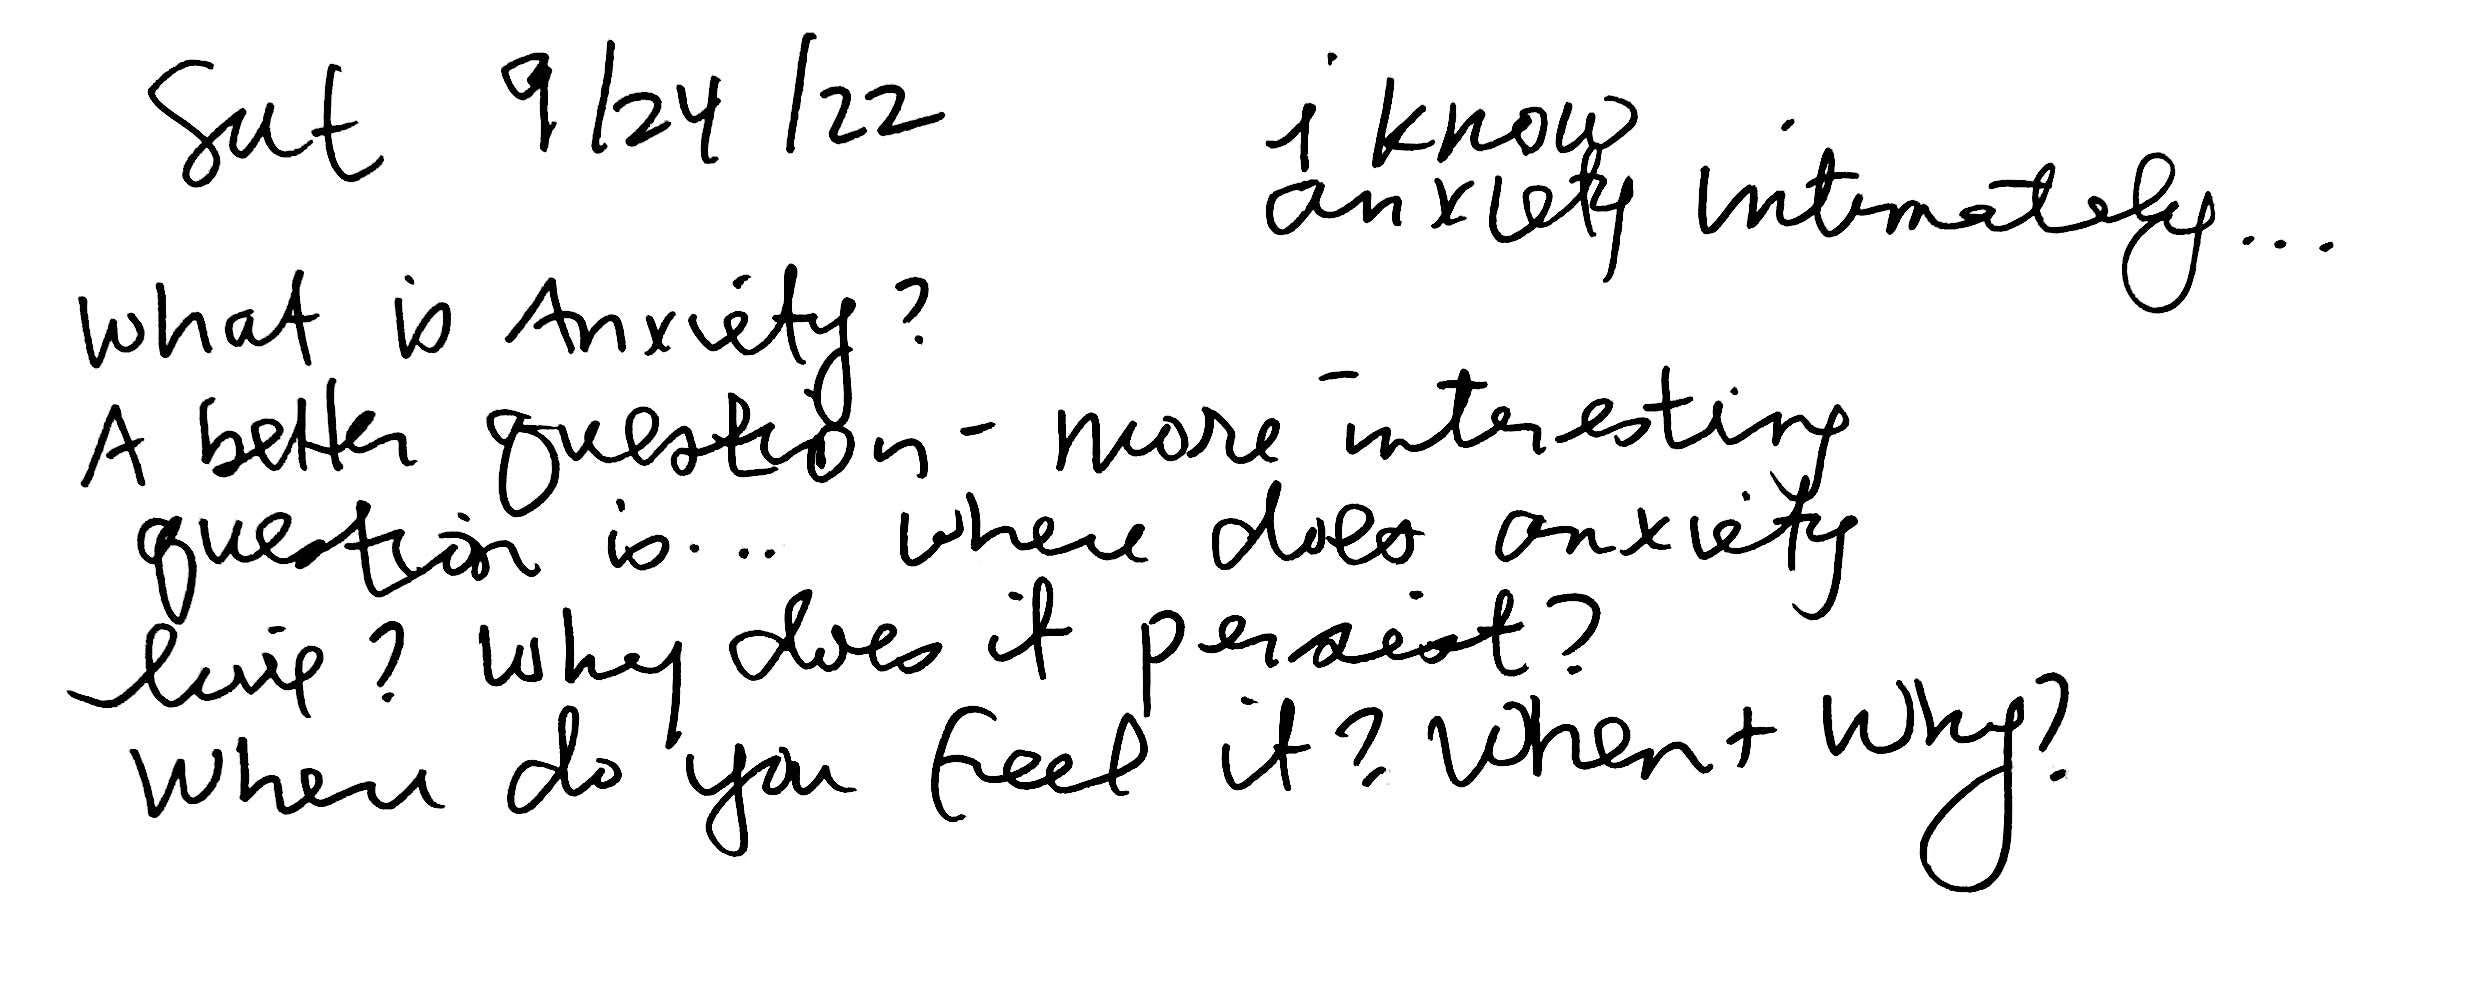 Sat 9/24/22
i know
anxiety intimately...
What is Anxiety?
A better question - more interesting
question is... where does anxiety
live? Why does it persist?
Where do you feel it? When + Why?